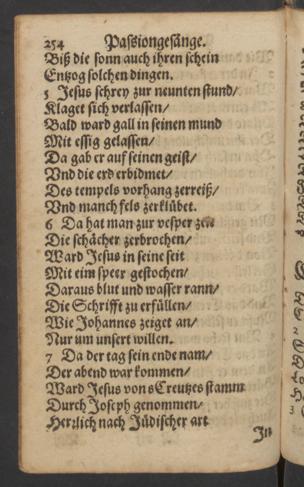 254 Passiongesänge.
Biß die sonn auch ihren schein
Entzog solchen dingen.
5 Jesus schrey zur neunten stund/
Klaget sich verlassen/
Bald ward gall in seinen mund
Mit essig gelassen/
Da gab er auf seinen geist/
Vnd die erd erbidmet/
Des tempels vorhang zerreiß/
Vnd manch fels zerklübet.
6 Da hat man zur vesper zeit
Die schächer zerbrochen/
Ward Jesus in seine seit
Mit eim speer gestochen/
Daraus blut und wasser rann/
Die Schrifft zu erfüllen/
Wie Johannes zeiget an/
Nur um unsert willen.
7 Da der tag sein ende nam/
Der abend war kommen/
Ward Jesus von s Creutzes stamm
Durch Joseph genommen/
Herrlich nach Jüdischer art
In